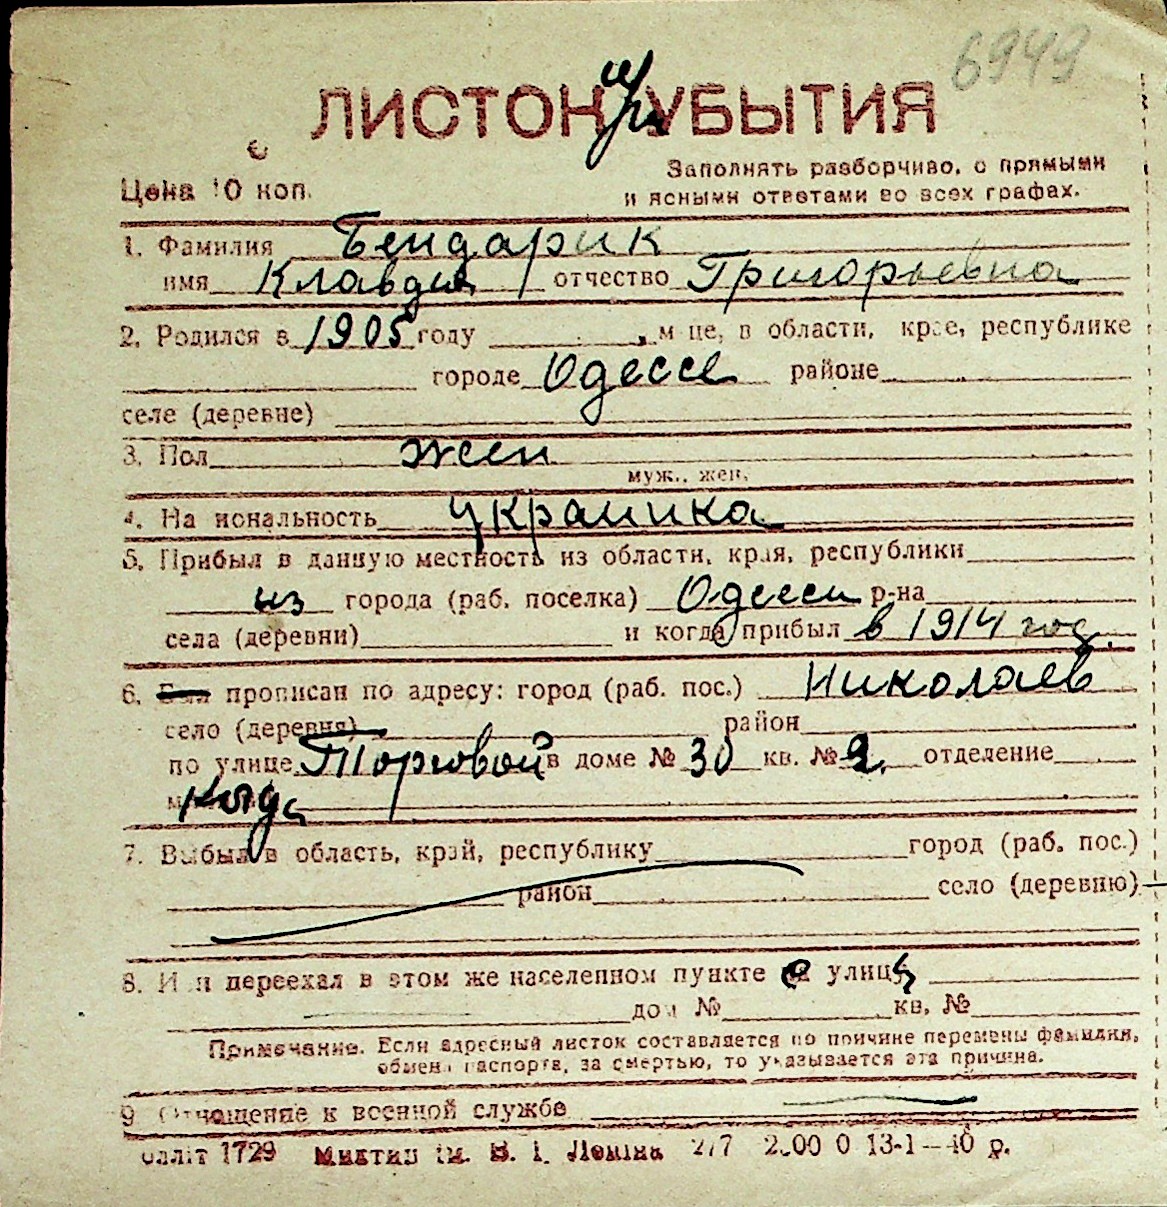 6949
ЛИСТОК при УБЫТИЯ
Цена 10 коп.
Заполнять разборчиво, с прямыми
и ясными ответами во всех графах.
1. Фамилия Бендарик
имя Клавдия отчество Григорьевна
2. Родился в 1905 году м-це, в области, крае, республике
городе Одессе районе
селе (деревне)
3. Пол жен
муж., жен.
4. Национальность украинка
5. Прибыл в данную местность из области, края, республики
из города (раб. поселка) Одессы р-на
села (деревни) и когда прибыл в 1914 год.
6. Был прописан по адресу: город (раб. пос.) Николаев
село (деревня) район
по улице Торговой в доме № 30 кв. № 2. отделение
Когда
7. Выбыл в область, край, республику город (раб. пос.)
район село (деревню)
8. Или переехал в этом же населенном пункте с улицы
дом № кв. №
Примечание. Если адресный листок составляется по причине перемены фамилии,
обмена паспорта, за смертью, то указывается эта причина.
9 Отношение к военной службе
1729 Миктип ім. В. І. Леніна 13-1-40 р.